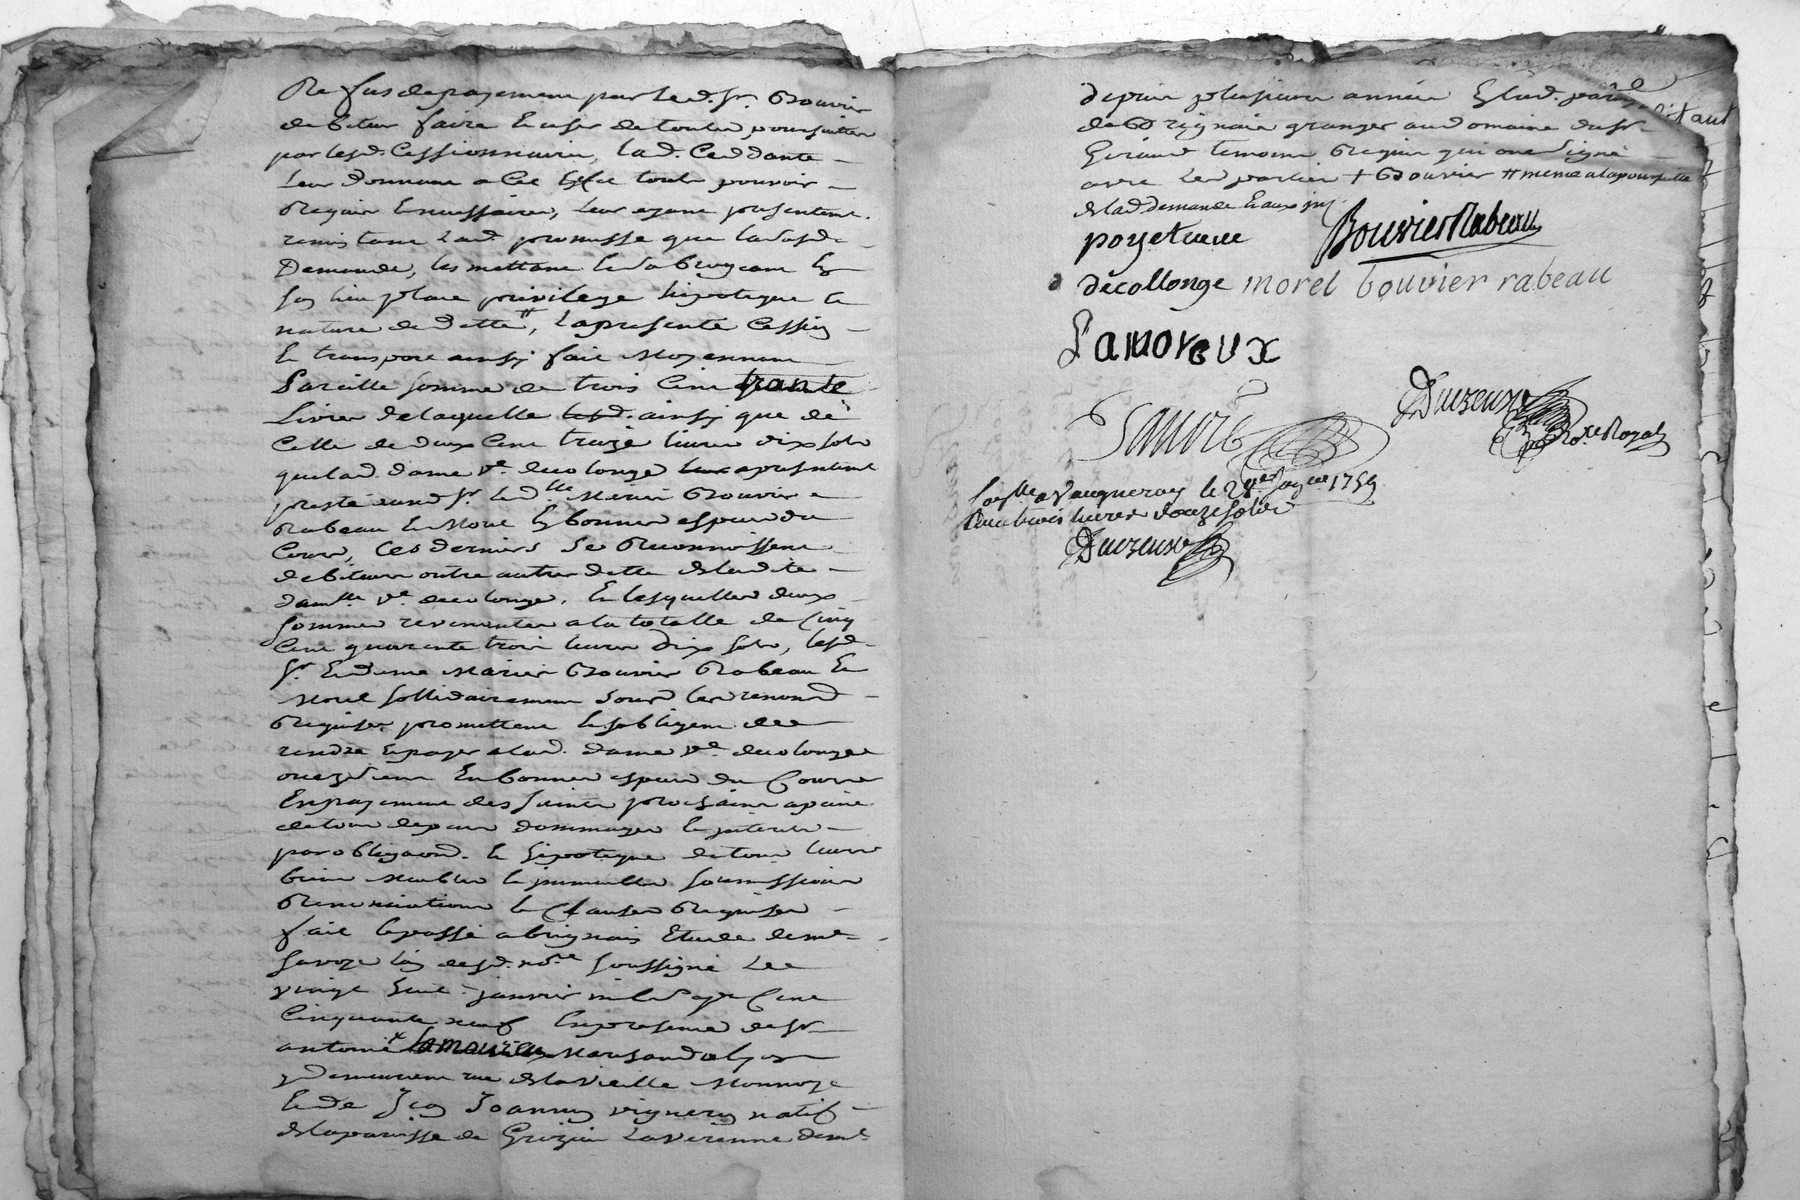 Refus de payement par led. Sr. Bouvier
debiteur faire et user de toutes poursuittes
par lesd. Cessionnaires, lad. Ceddante
leur donnant a cet effet tout pouvoir
Requis et necessaire, leur ayant presentement
remis tant lad. promesse que la susd.
Demande, les mettant et subrogeant en
son lieu place privilege hipoteque et
nature de dette #, la presente Cession
et transport ainsy fait moyennant
Pareille somme de trois Cent trante
livres de laquelle ainsy que de
Celle de deux Cent treize livres dix sols
que lad. dame ve. decolonge a presentement
presté auxd. Sr. et dlle mariés Bouvier
Rabeau et Morel en bonnes especes du
Cours, Ces derniers se Reconnoissent
debiteurs outre autre dette de ladite
dame ve. decolonge, et lesquelles deux
sommes revenantes a la totalle de Cinq
Cent quarante trois livres dix sols, lesd.
Sr. et dame mariés Bouvier Rabeau et
Morel sollidairement sous les renond.
Requises promettent et s'obligent de
rendre et payer a lad. dame ve. decolonge
ou ez siens en bonnes especes du Cours
en payement des saints prochains a peine
de tous depens dommages et interets
par obligaond. et hipoteque de tous leurs
biens meubles et immeubles soumissions
Renonciations et Clauses Requises
fait et passé a brignais Etude de me
Savoye l'un desd. nores soussigné le
vingt huit janvier mil sept Cent
Cinquante neuf en presence de sr
antoine + lamoureux marchand a lyon
y demeurant rue de la vieille Monnoye
et de Jean Joannin vigneron natif
de la paroisse de Grezieu La Varenne demt
depuis plusieurs années en lad. paroisse
de Brignais granger au domaine du sr
Geraud temoins Requis qui ont signé
avec les parties + Bouvier # meme a la poursuitte
de lad demande et aux
poyetueue
Bouvier Rabeau
decollonge morel bouvier rabeau
Lamoreux
Savoie
Duzeux
Nore Royal
a Vaugneray le 28e janvier 1759
trois livres douze sols
Duzeux